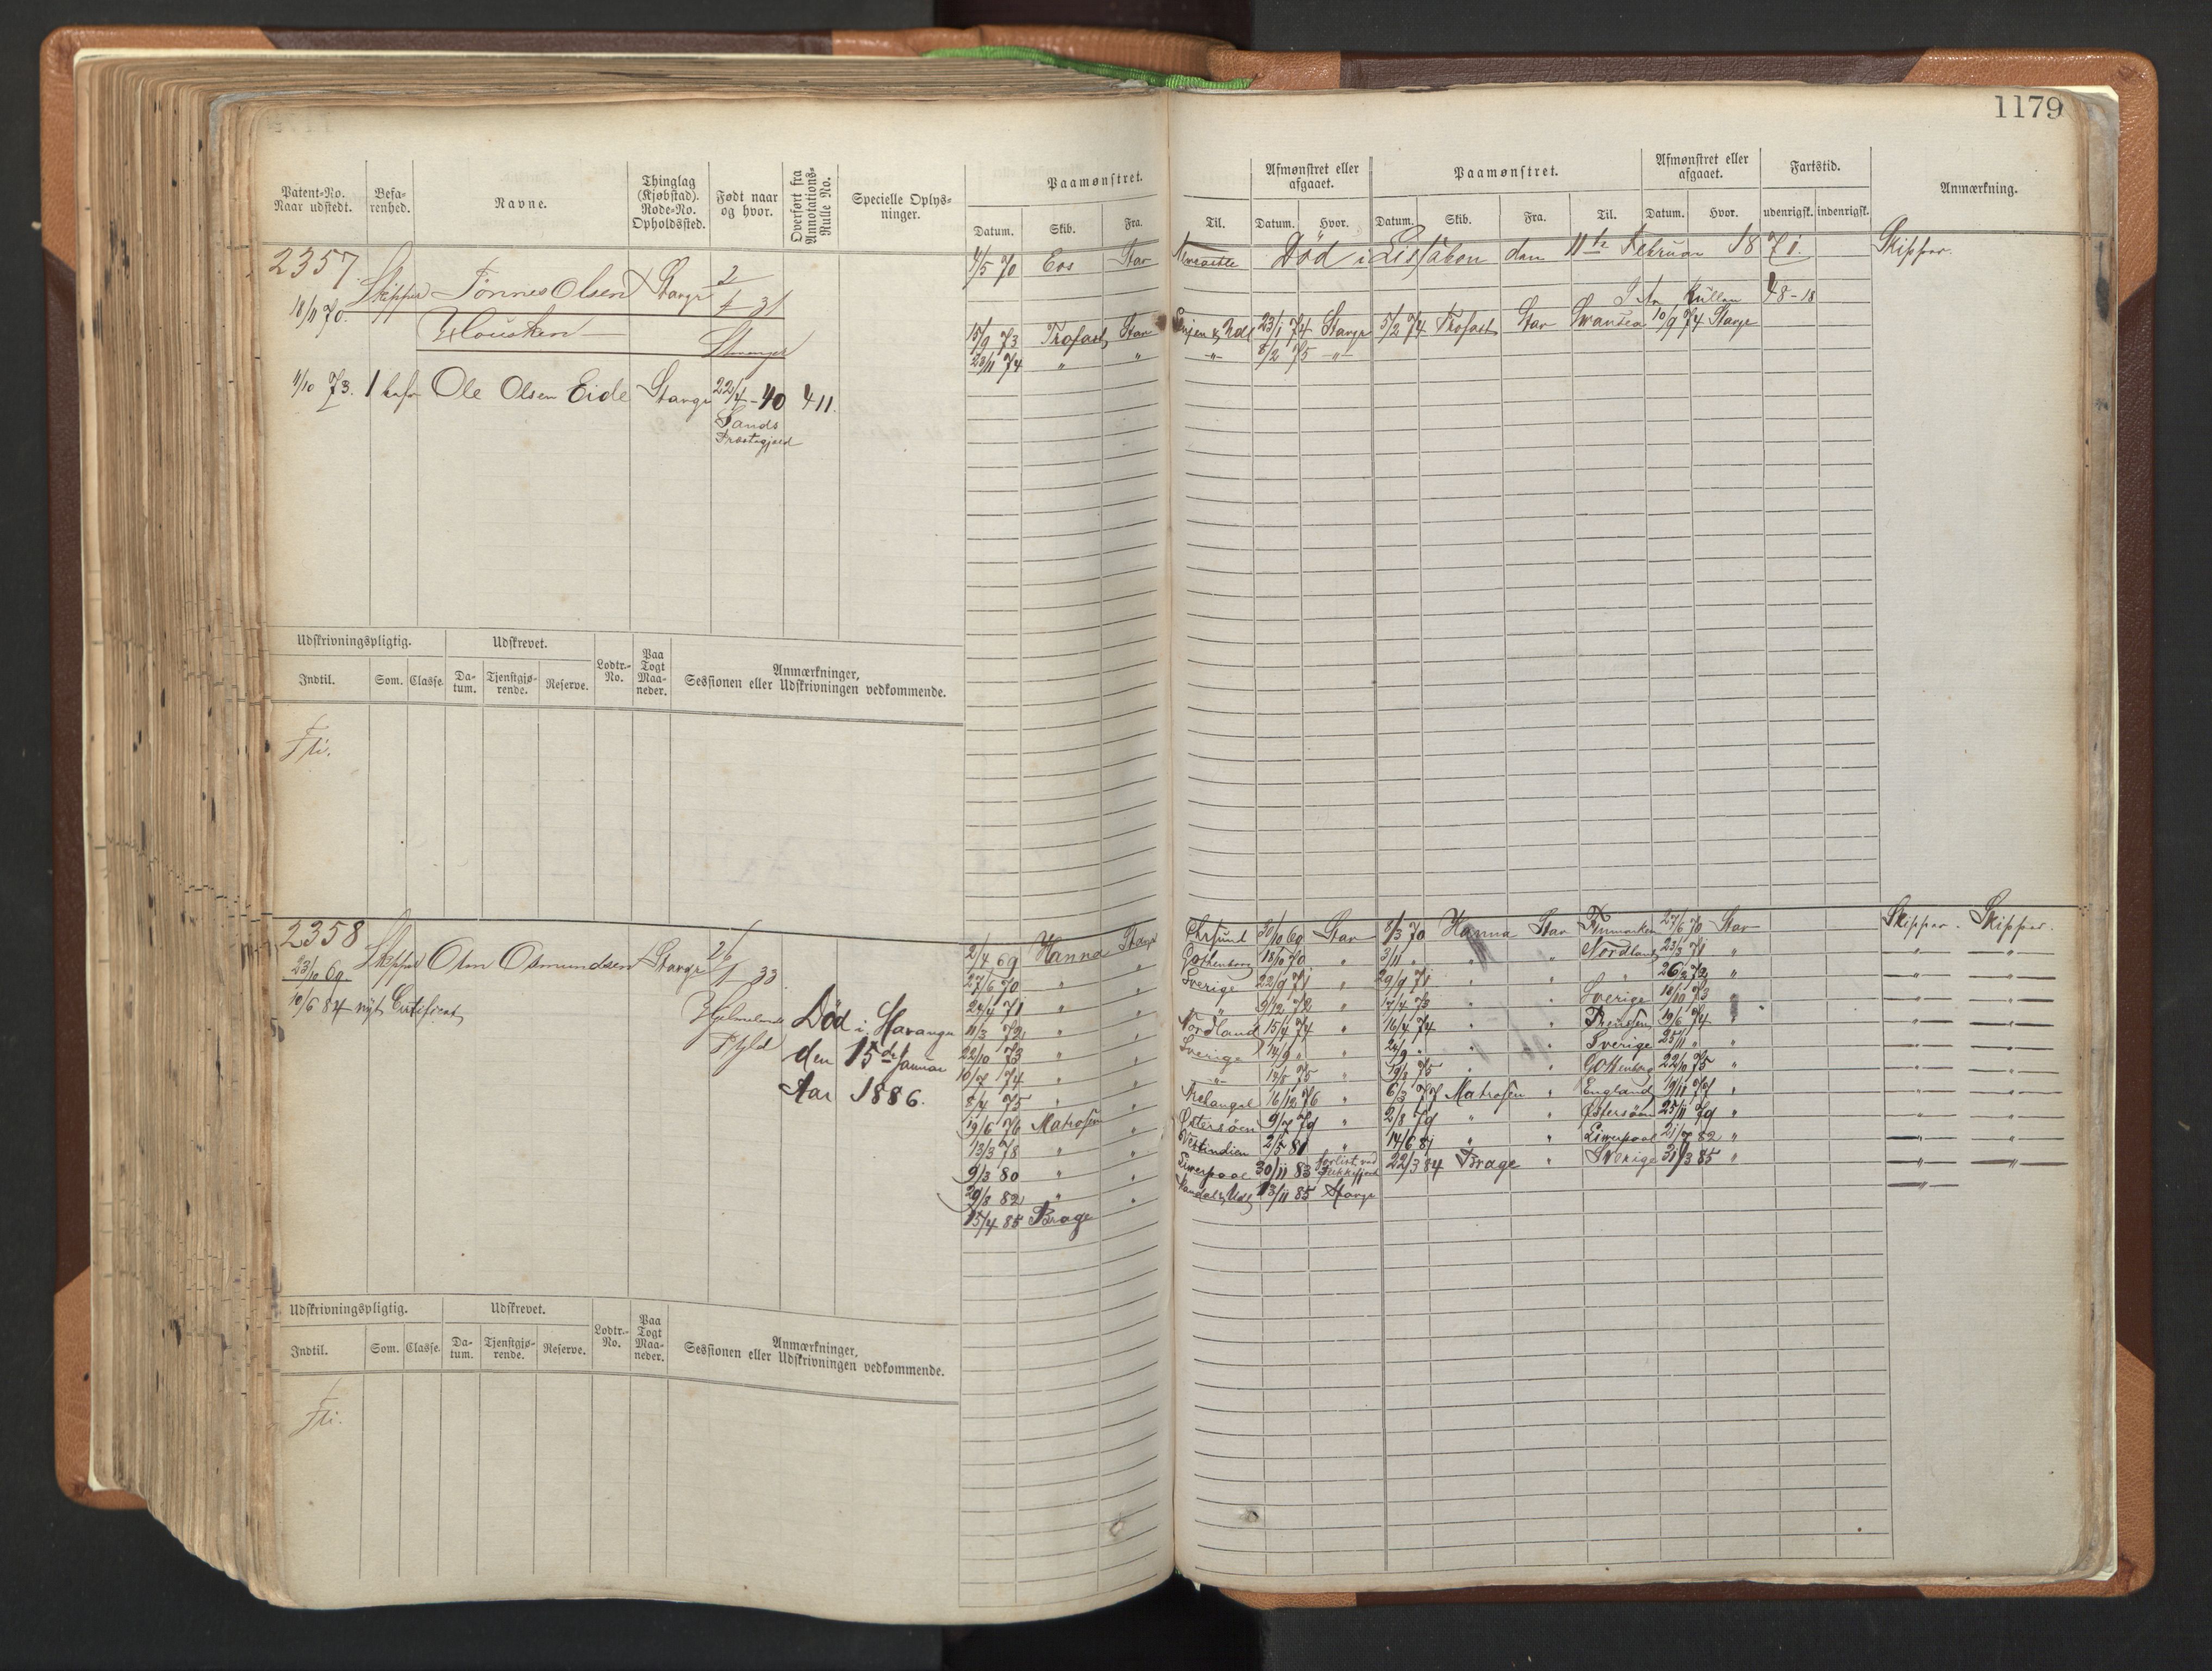 1179
Patent-No. Naar udstedt. Befa-renhed. Navne. Thinglag (Kjøbstad). Rode-No. Opholdssted. Født naar og hvor. Overført fra Annotations-Rulle No. Specielle Oplys-ninger. Paamønstret. Afmønstret eller afgaaet. Paamønstret. Afmønstret eller afgaaet. Fartstid. Anmærkning.
Datum. Skib. Fra. Til. Datum. Hvor. Datum. Skib. Fra. Til. Datum. Hvor. udenrigsk. indenrigsk.
2357. Skipper Tønnes Olsen Stavgr 2/4 31
18/11 70. Housken Stavanger
4/5 70 Eos Stav Newcastle Død i Lissabon den 11te Februar 1871. Skipper.
48-18
15/9 73 Trofast Stav 23/1 74 Stavgr 5/2 74 Trofast Stav Swansea 10/9 74 Stavgr
23/11 74 " " -"- 8/2 75 -"-
11/10 73. 1 bef Ole Olsen Eide Stavgr 22/4-40 411.
Sands Præstegjæld
Udskrivningspligtig. Udskrevet. Lodtr.-No. Paa Togt Maa-neder. Anmærkninger, Sessionen eller Udskrivningen vedkommende.
Indtil. Som. Classe. Da-tum. Tjenstgjø-rende. Reserve.
Fri.
2358 Skipper Osmundsen Stavgr 26/4 33
23/10 69.
10/6 84 nyt Certificat
Hjelmelands
Død i Stavanger
den 15de Januar
Aar 1886.
2/4 69 Hanna Stavgr 30/10 69 Stav 8/3 70 Hanna Stav Finmarken 27/6 70 Stav Skipper. Skipper.
27/6 70 " " Gothenborg 18/10 70 " 3/11 " " " Nordland 23/3 71 " -"- -"-
24/4 71 " " Sverige 22/9 71 " 29/9 71 " " " " -"- -"-
11/3 72 " " " 9/12 72 " 17/4 73 " " Sverige 10/10 73 " -"- -"-
22/10 73 " " Nordland 15/4 74 " 16/4 74 " " 19/6 74 " -"- -"-
10/7 74 " " Sverige 14/9 " " 24/9 " " " Sverige 25/11 " " -"- -"-
8/4 75 " " -"- 75 " 19/3 75 " " Gottenborg 22/10 75 " -"- -"-
19/6 76 Matrosen " 16/12 76 " 6/3 77 Matrosen " England 19/11 77 " -"- -"-
13/3 78 " " Østersøen 9/7 79 " 2/8 79 " " Østersøen 25/11 79 " -"- -"-
9/3 80 " " Vestindien 2/5 81 " 14/6 81 " " Liverpool 21/7 82 " -"- -"-
29/8 82 " " Liverpool 30/11 83 forlist ved 22/3 84 Brage " Sverige 31/3 85 " -"- -"-
15/4 85 Brage 13/11 85 Stavgr -"-
Udskrivningspligtig. Udskrevet. Lodtr.-No. Paa Togt Maa-neder. Anmærkninger, Sessionen eller Udskrivningen vedkommende.
Indtil. Som. Classe. Da-tum. Tjenstgjø-rende. Reserve.
Fri.